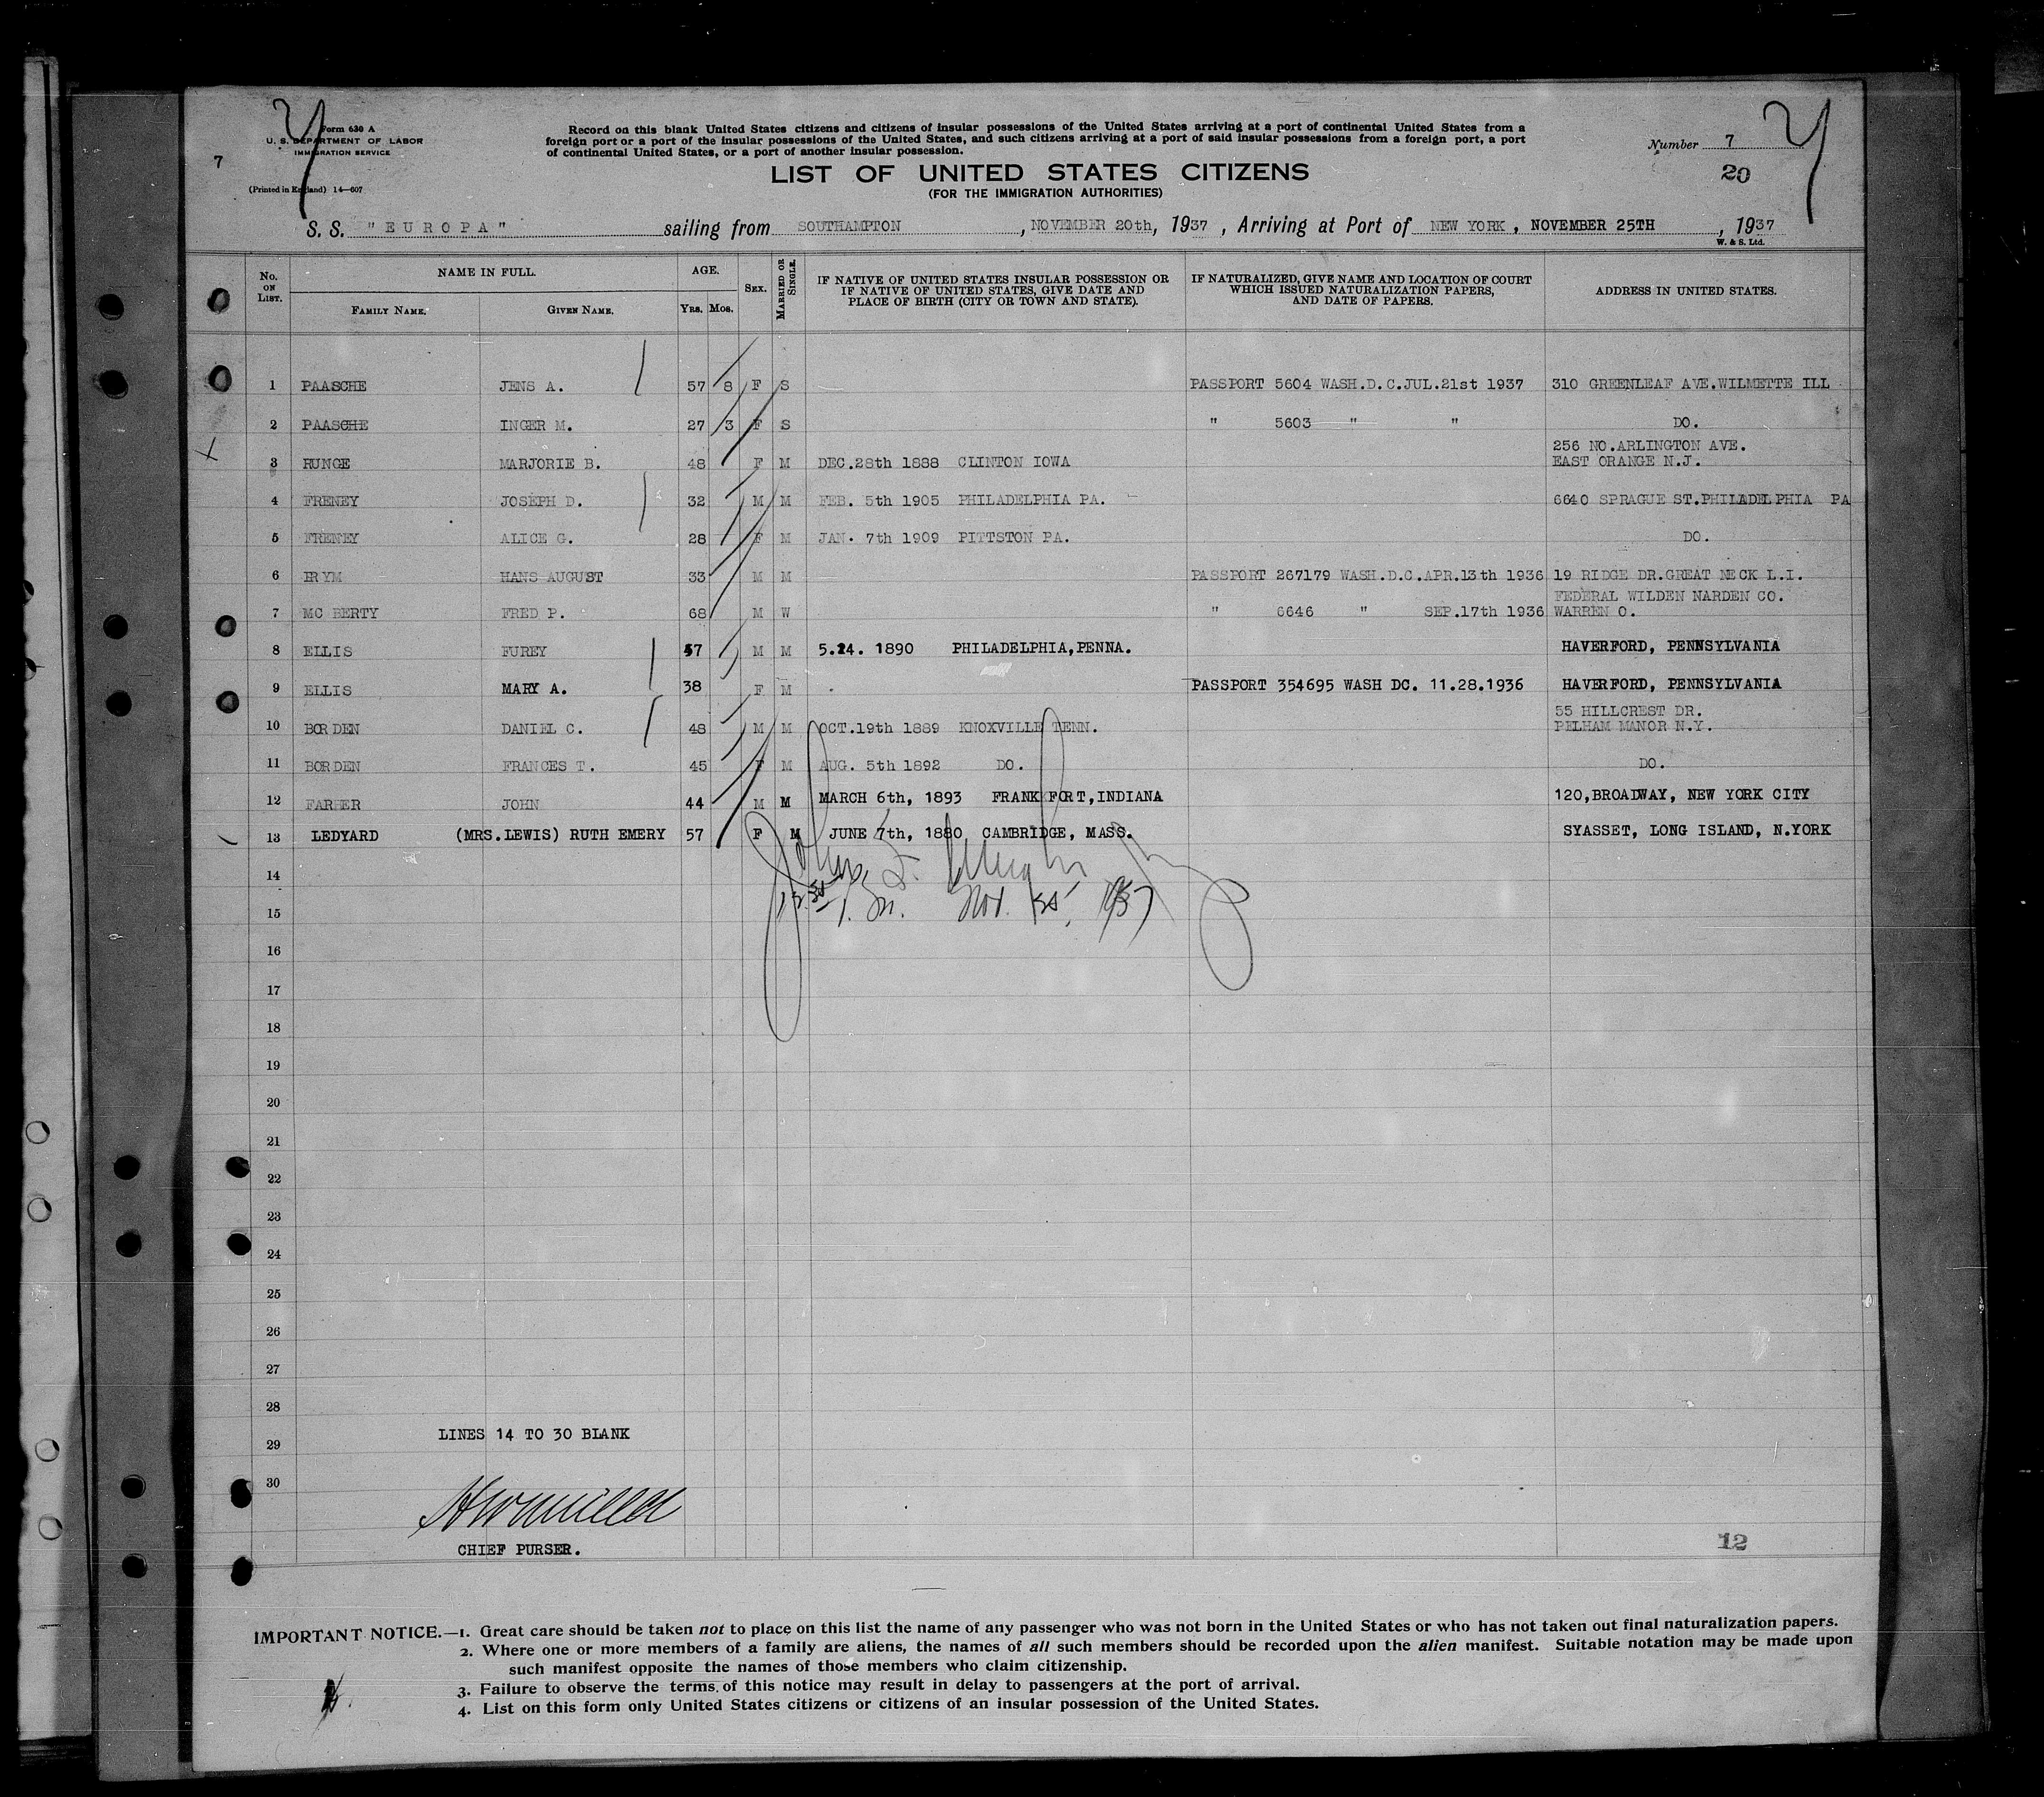 Form 630 A
U. S. DEPARTMENT OF LABOR
IMMIGRATION SERVICE
7
(Printed in England) 14—607
Record on this blank United States citizens and citizens of insular possessions of the United States arriving at a port of continental United States from a
foreign port or a port of the insular possessions of the United States, and such citizens arriving at a port of said insular possessions from a foreign port, a port
of continental United States, or a port of another insular possession.
Number 7
20
LIST OF UNITED STATES CITIZENS
(FOR THE IMMIGRATION AUTHORITIES)
S. S. "EUROPA" sailing from SOUTHAMPTON, NOVEMBER 20th, 1937, Arriving at Port of NEW YORK, NOVEMBER 25TH, 1937
W. & S. Ltd.
No. ON LIST. NAME IN FULL. AGE. SEX. MARRIED OR SINGLE. IF NATIVE OF UNITED STATES INSULAR POSSESSION OR IF NATIVE OF UNITED STATES, GIVE DATE AND PLACE OF BIRTH (CITY OR TOWN AND STATE). IF NATURALIZED, GIVE NAME AND LOCATION OF COURT WHICH ISSUED NATURALIZATION PAPERS, AND DATE OF PAPERS. ADDRESS IN UNITED STATES.
FAMILY NAME. GIVEN NAME. YRS. MOS.
1 PAASCHE JENS A. 57 8 F S PASSPORT 5604 WASH.D.C.JUL.21st 1937 310 GREENLEAF AVE.WILMETTE ILL
2 PAASCHE INGER M. 27 3 F S " 5603 " " DO.
3 RUNGE MARJORIE B. 48 F M DEC.28th 1888 CLINTON IOWA 256 NO.ARLINGTON AVE. EAST ORANGE N.J.
4 FRENEY JOSEPH D. 32 M M FEB. 5th 1905 PHILADELPHIA PA. 6640 SPRAGUE ST.PHILADELPHIA PA
5 FRENEY ALICE G. 28 F M JAN. 7th 1909 PITTSTON PA. DO.
6 HANS AUGUST 33 M M PASSPORT 267179 WASH.D.C.APR.13th 1936 19 RIDGE DR.GREAT NECK L.I.
7 MC BERTY FRED P. 68 M W " 6646 " SEP.17th 1936 FEDERAL WILDEN NARDEN CO. WARREN O.
8 ELLIS FUREY 47 M M 5.24. 1890 PHILADELPHIA,PENNA. HAVERFORD, PENNSYLVANIA
9 ELLIS MARY A. 38 F M PASSPORT 354695 WASH DC. 11.28.1936 HAVERFORD, PENNSYLVANIA
10 BORDEN DANIEL C. 48 M M OCT.19th 1889 KNOXVILLE TENN. 55 HILLCREST DR. PELHAM MANOR N.Y.
11 BORDEN FRANCES T. 45 F M AUG. 5th 1892 DO. DO.
12 FARBER JOHN 44 M M MARCH 6th, 1893 FRANKFORT,INDIANA 120,BROADWAY, NEW YORK CITY
13 LEDYARD (MRS.LEWIS) RUTH EMERY 57 F M JUNE 7th, 1880 CAMBRIDGE, MASS. SYASSET, LONG ISLAND, N.YORK
14
15 Nov. 25, 1937
16
17
18
19
20
21
22
23
24
25
26
27
28
LINES 14 TO 30 BLANK
29
30
CHIEF PURSER.
12
IMPORTANT NOTICE.—1. Great care should be taken not to place on this list the name of any passenger who was not born in the United States or who has not taken out final naturalization papers.
2. Where one or more members of a family are aliens, the names of all such members should be recorded upon the alien manifest. Suitable notation may be made upon
such manifest opposite the names of those members who claim citizenship.
3. Failure to observe the terms of this notice may result in delay to passengers at the port of arrival.
4. List on this form only United States citizens or citizens of an insular possession of the United States.